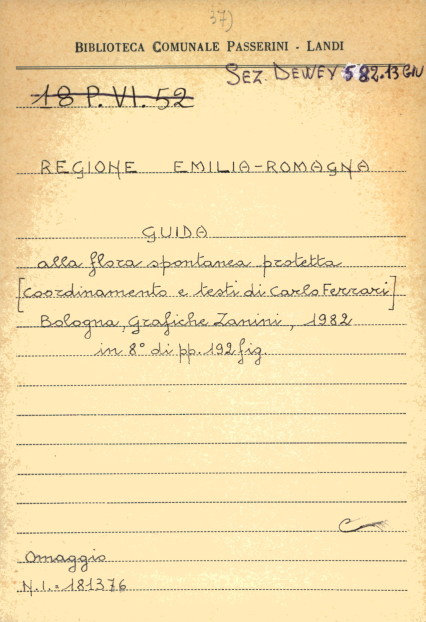 37)
BIBLIOTECA COMUNALE PASSERINI - LANDI
SEZ. DEWEY 582.13 GIU
18 P. VI. 52
REGIONE EMILIA-ROMAGNA
GUIDA
alla flora spontanea protetta
[Coordinamento e testi di Carlo Ferrari]
Bologna, Grafiche Zanini, 1982
in 8° di pp. 192 fig.
Omaggio
N.I.= 181376